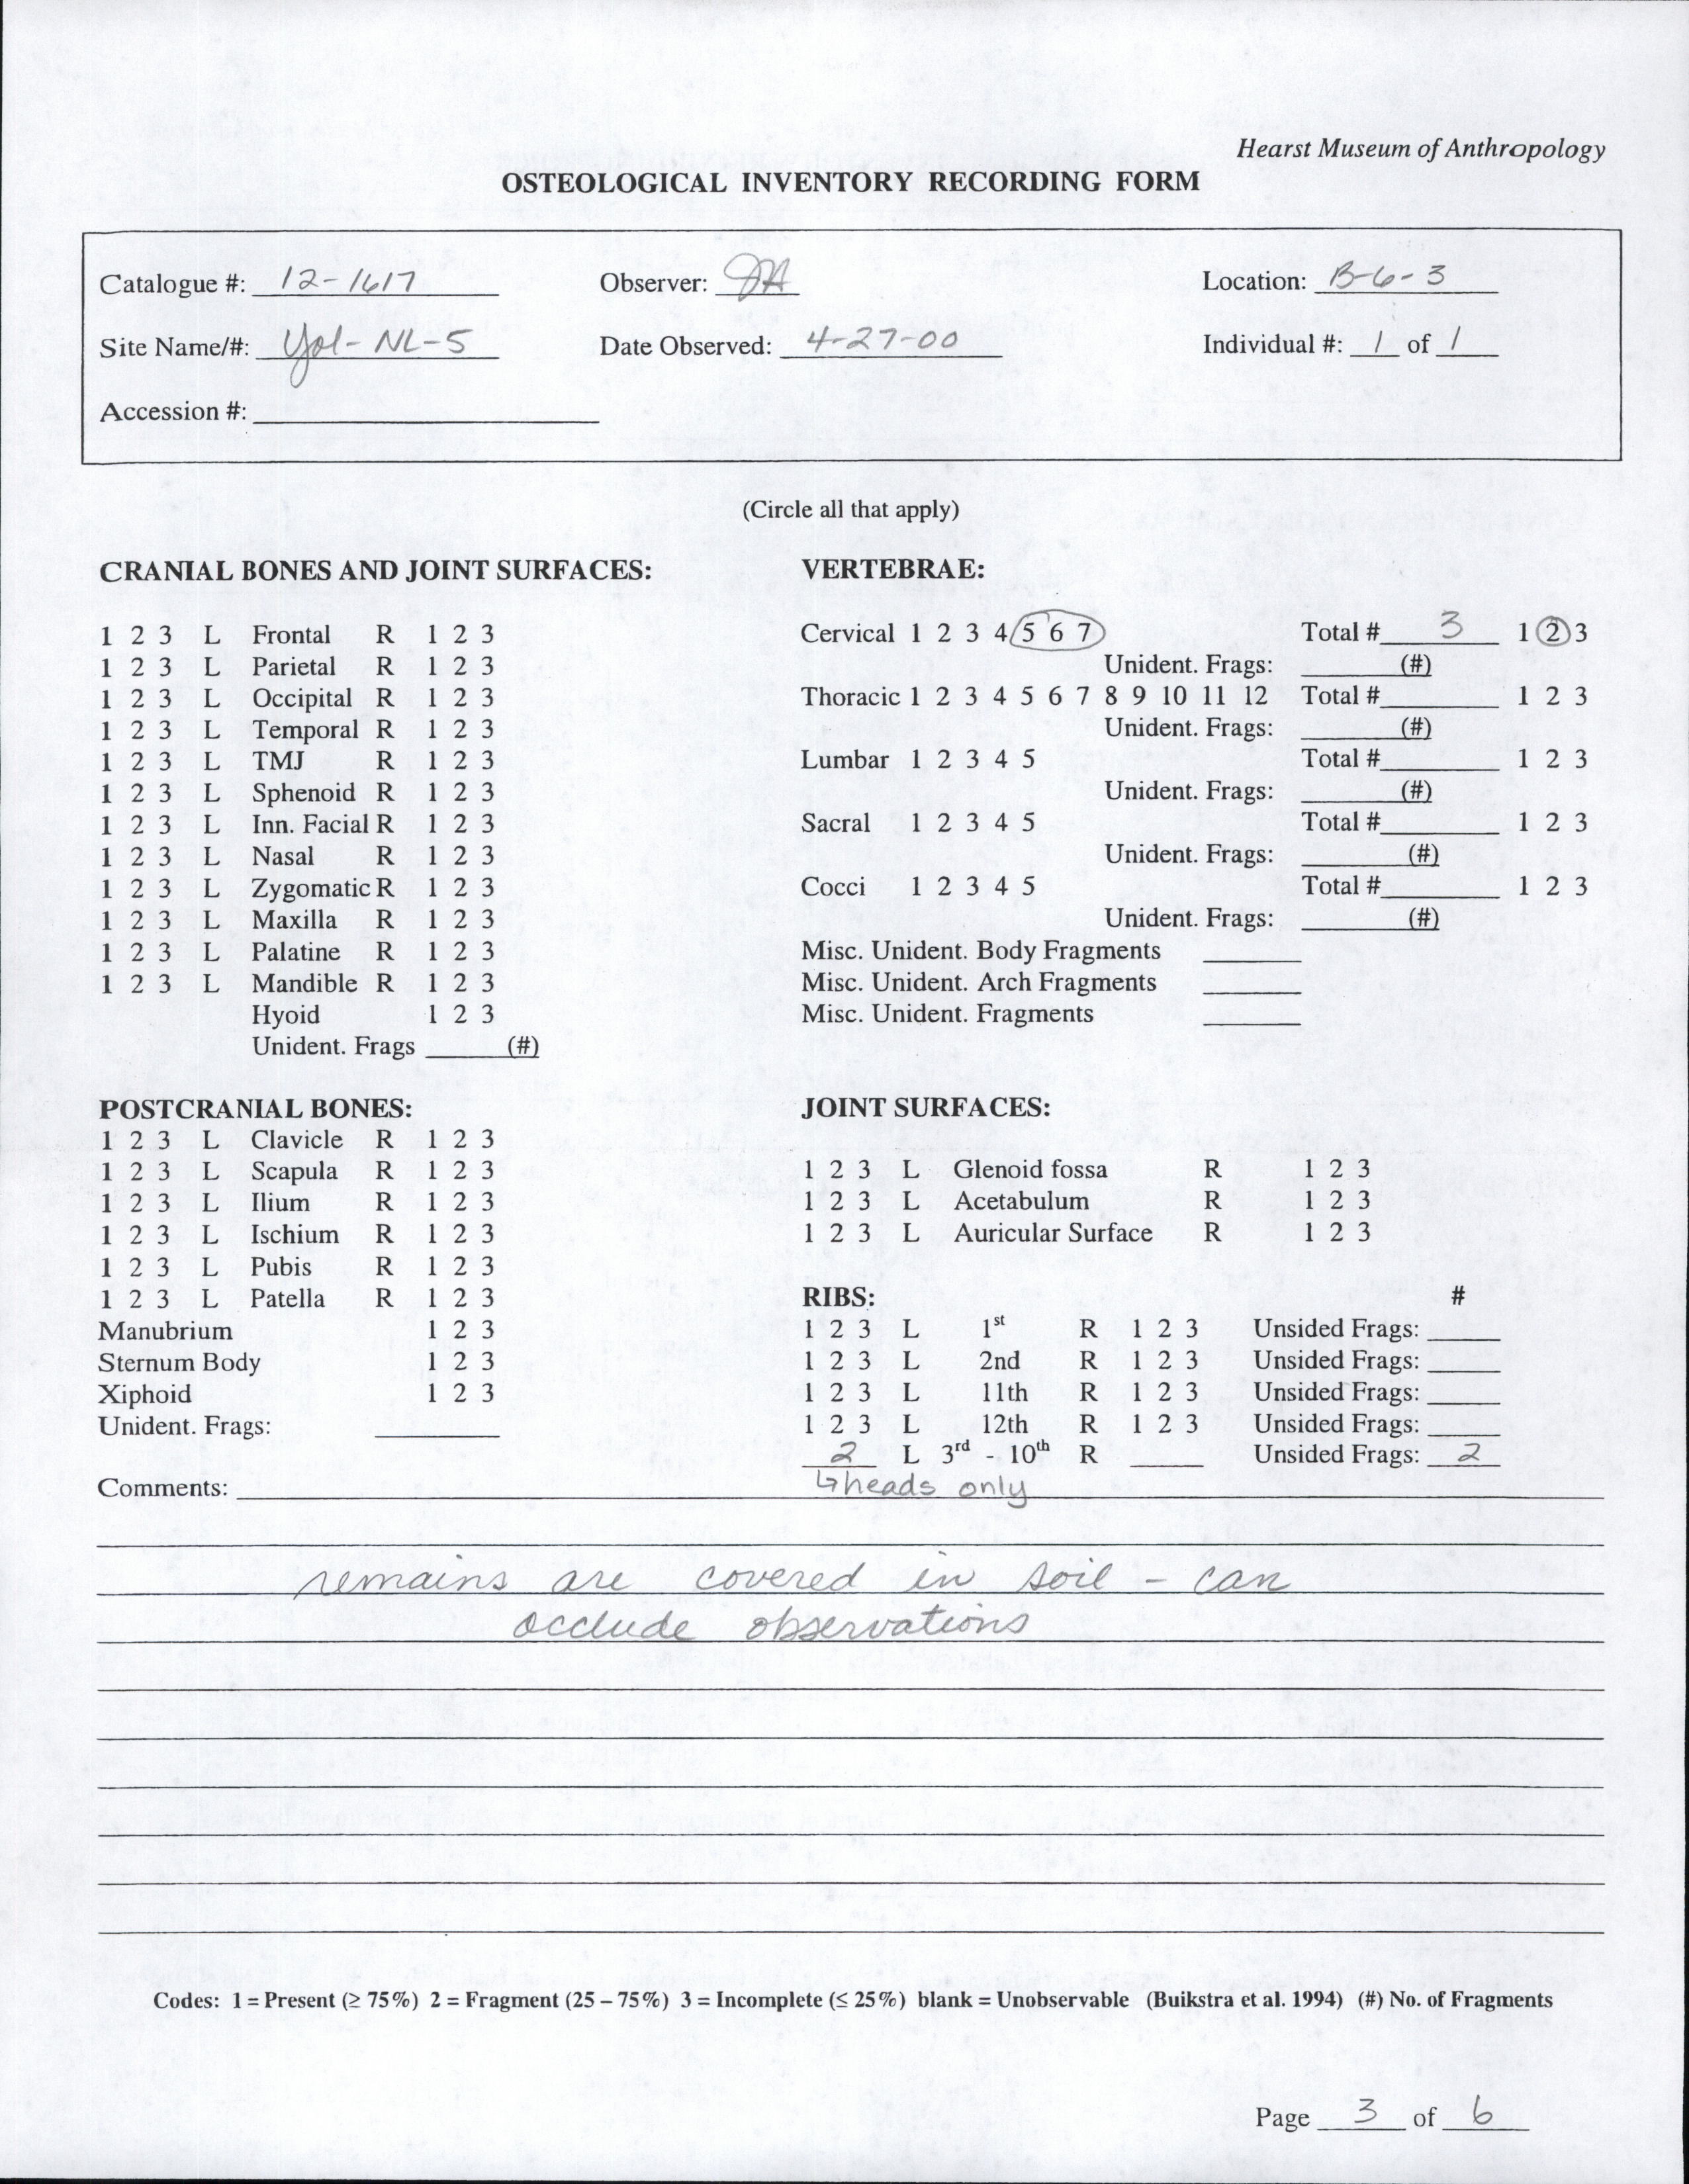 Hearst Museum of Anthropology
OSTEOLOGICAL INVENTORY RECORDING FORM
Catalogue #: 12-1617 Observer: JA Location: B-6-3
Site Name/#: Yol-NL-5 Date Observed: 4-27-00 Individual #: 1 of 1
Accession #:
(Circle all that apply)
CRANIAL BONES AND JOINT SURFACES:
1 2 3 L Frontal R 1 2 3
1 2 3 L Parietal R 1 2 3
1 2 3 L Occipital R 1 2 3
1 2 3 L Temporal R 1 2 3
1 2 3 L TMJ R 1 2 3
1 2 3 L Sphenoid R 1 2 3
1 2 3 L Inn. Facial R 1 2 3
1 2 3 L Nasal R 1 2 3
1 2 3 L Zygomatic R 1 2 3
1 2 3 L Maxilla R 1 2 3
1 2 3 L Palatine R 1 2 3
1 2 3 L Mandible R 1 2 3
Hyoid 1 2 3
Unident. Frags (#)
VERTEBRAE:
Cervical 1 2 3 4 5 6 7 Total # 3 1 2 3
Unident. Frags: (#)
Thoracic 1 2 3 4 5 6 7 8 9 10 11 12 Total # 1 2 3
Unident. Frags: (#)
Lumbar 1 2 3 4 5 Total # 1 2 3
Unident. Frags: (#)
Sacral 1 2 3 4 5 Total # 1 2 3
Unident. Frags: (#)
Cocci 1 2 3 4 5 Total # 1 2 3
Unident. Frags: (#)
Misc. Unident. Body Fragments
Misc. Unident. Arch Fragments
Misc. Unident. Fragments
POSTCRANIAL BONES:
1 2 3 L Clavicle R 1 2 3
1 2 3 L Scapula R 1 2 3
1 2 3 L Ilium R 1 2 3
1 2 3 L Ischium R 1 2 3
1 2 3 L Pubis R 1 2 3
1 2 3 L Patella R 1 2 3
Manubrium 1 2 3
Sternum Body 1 2 3
Xiphoid 1 2 3
Unident. Frags:
JOINT SURFACES:
1 2 3 L Glenoid fossa R 1 2 3
1 2 3 L Acetabulum R 1 2 3
1 2 3 L Auricular Surface R 1 2 3
RIBS: #
1 2 3 L 1st R 1 2 3 Unsided Frags:
1 2 3 L 2nd R 1 2 3 Unsided Frags:
1 2 3 L 11th R 1 2 3 Unsided Frags:
1 2 3 L 12th R 1 2 3 Unsided Frags:
2 L 3rd - 10th R Unsided Frags: 2
Comments: ↳heads only
remains are covered in soil - can
occlude observations
Codes: 1 = Present (≥ 75%) 2 = Fragment (25 – 75%) 3 = Incomplete (≤ 25%) blank = Unobservable (Buikstra et al. 1994) (#) No. of Fragments
Page 3 of 6